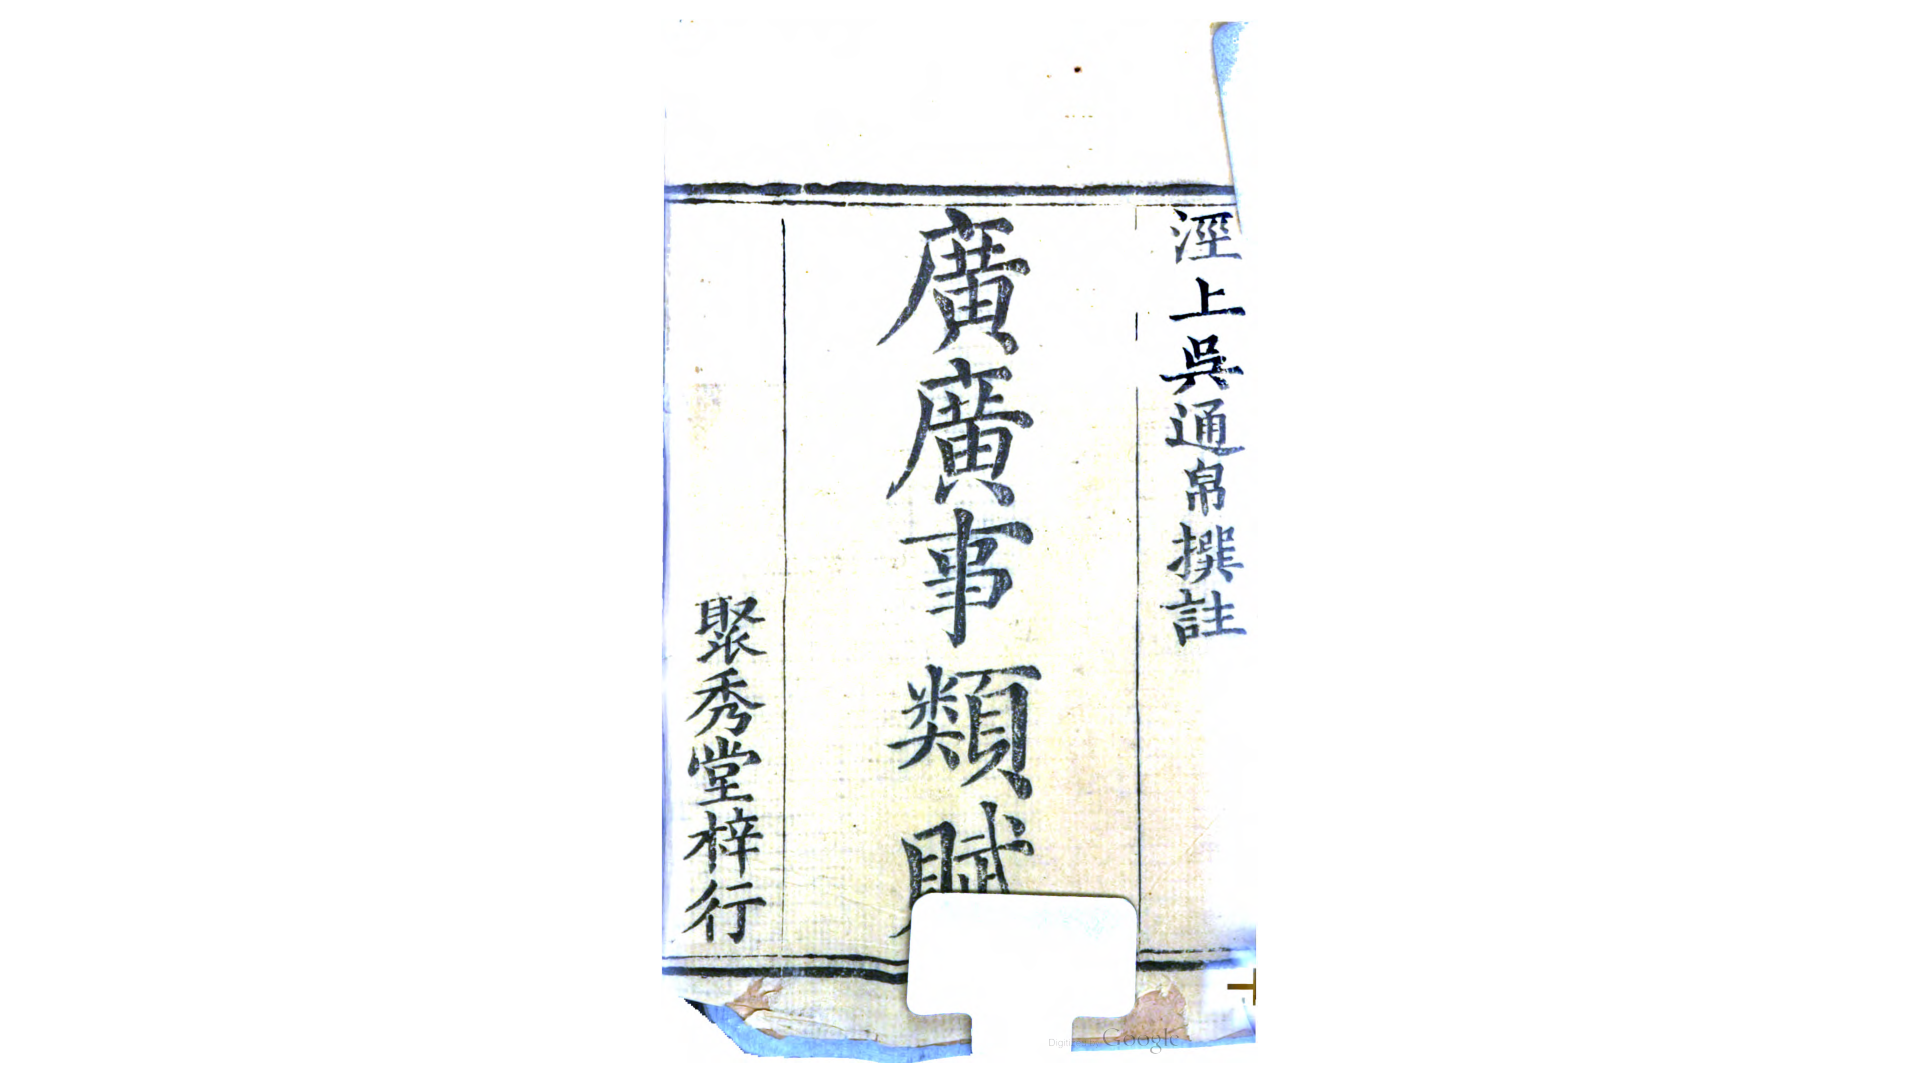 涇上吳通帛撰註
廣廣事類賦
聚秀堂梓行
Google